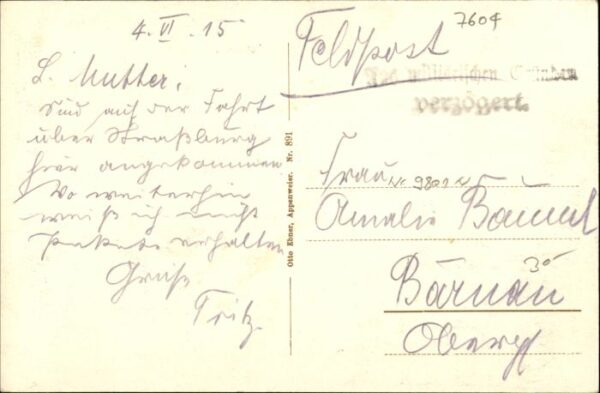 4. VI. 15
L. Mutter!
Sind auf der Fahrt
über Straßburg
hier angekommen
Wo weiterhin
weiß ich nicht
Pakete erhalten
Gruß
Fritz
Otto Ebner, Appenweier. Nr. 891
7604
Feldpost
Aus militärischen Gründen
verzögert.
Frau
Amalie
Bärnau
30
Oberpf